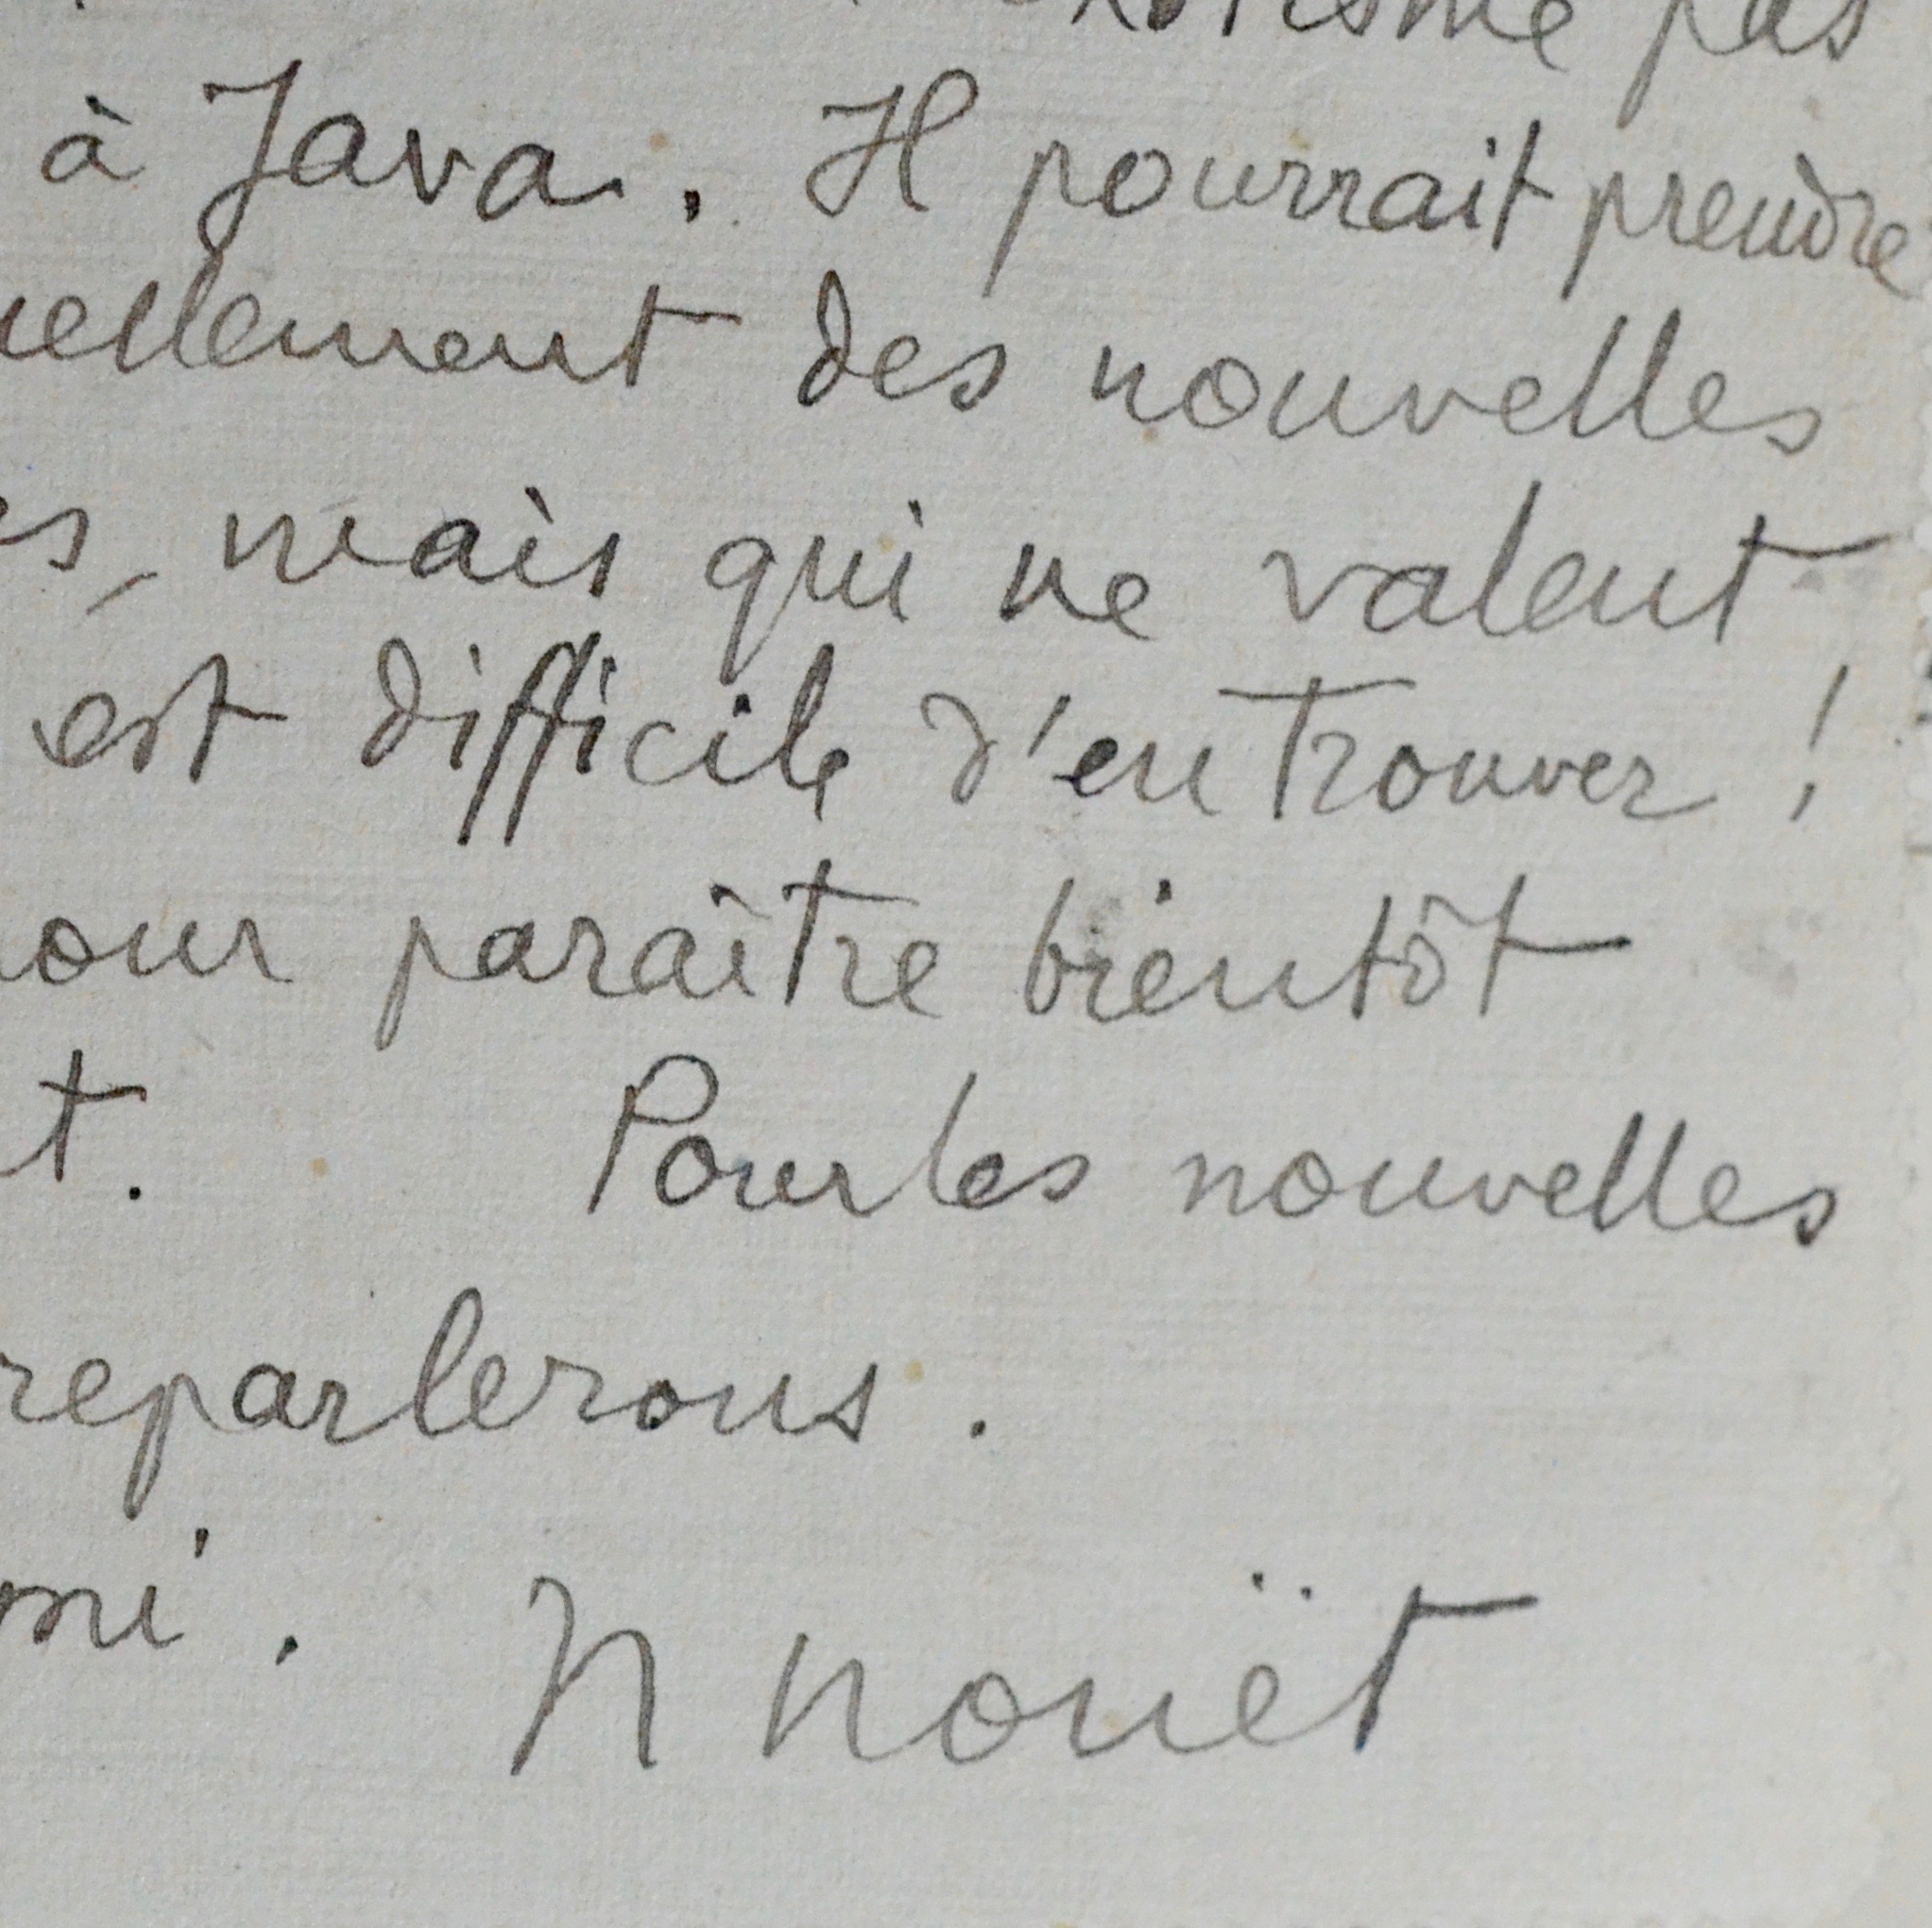 pas
à Java. Il pourrait prendre
ellement des nouvelles
s, mais qui ne valent
est difficile d'en trouver !
our paraître bientôt
t. Pour les nouvelles
reparlerons.
mi. N nouët